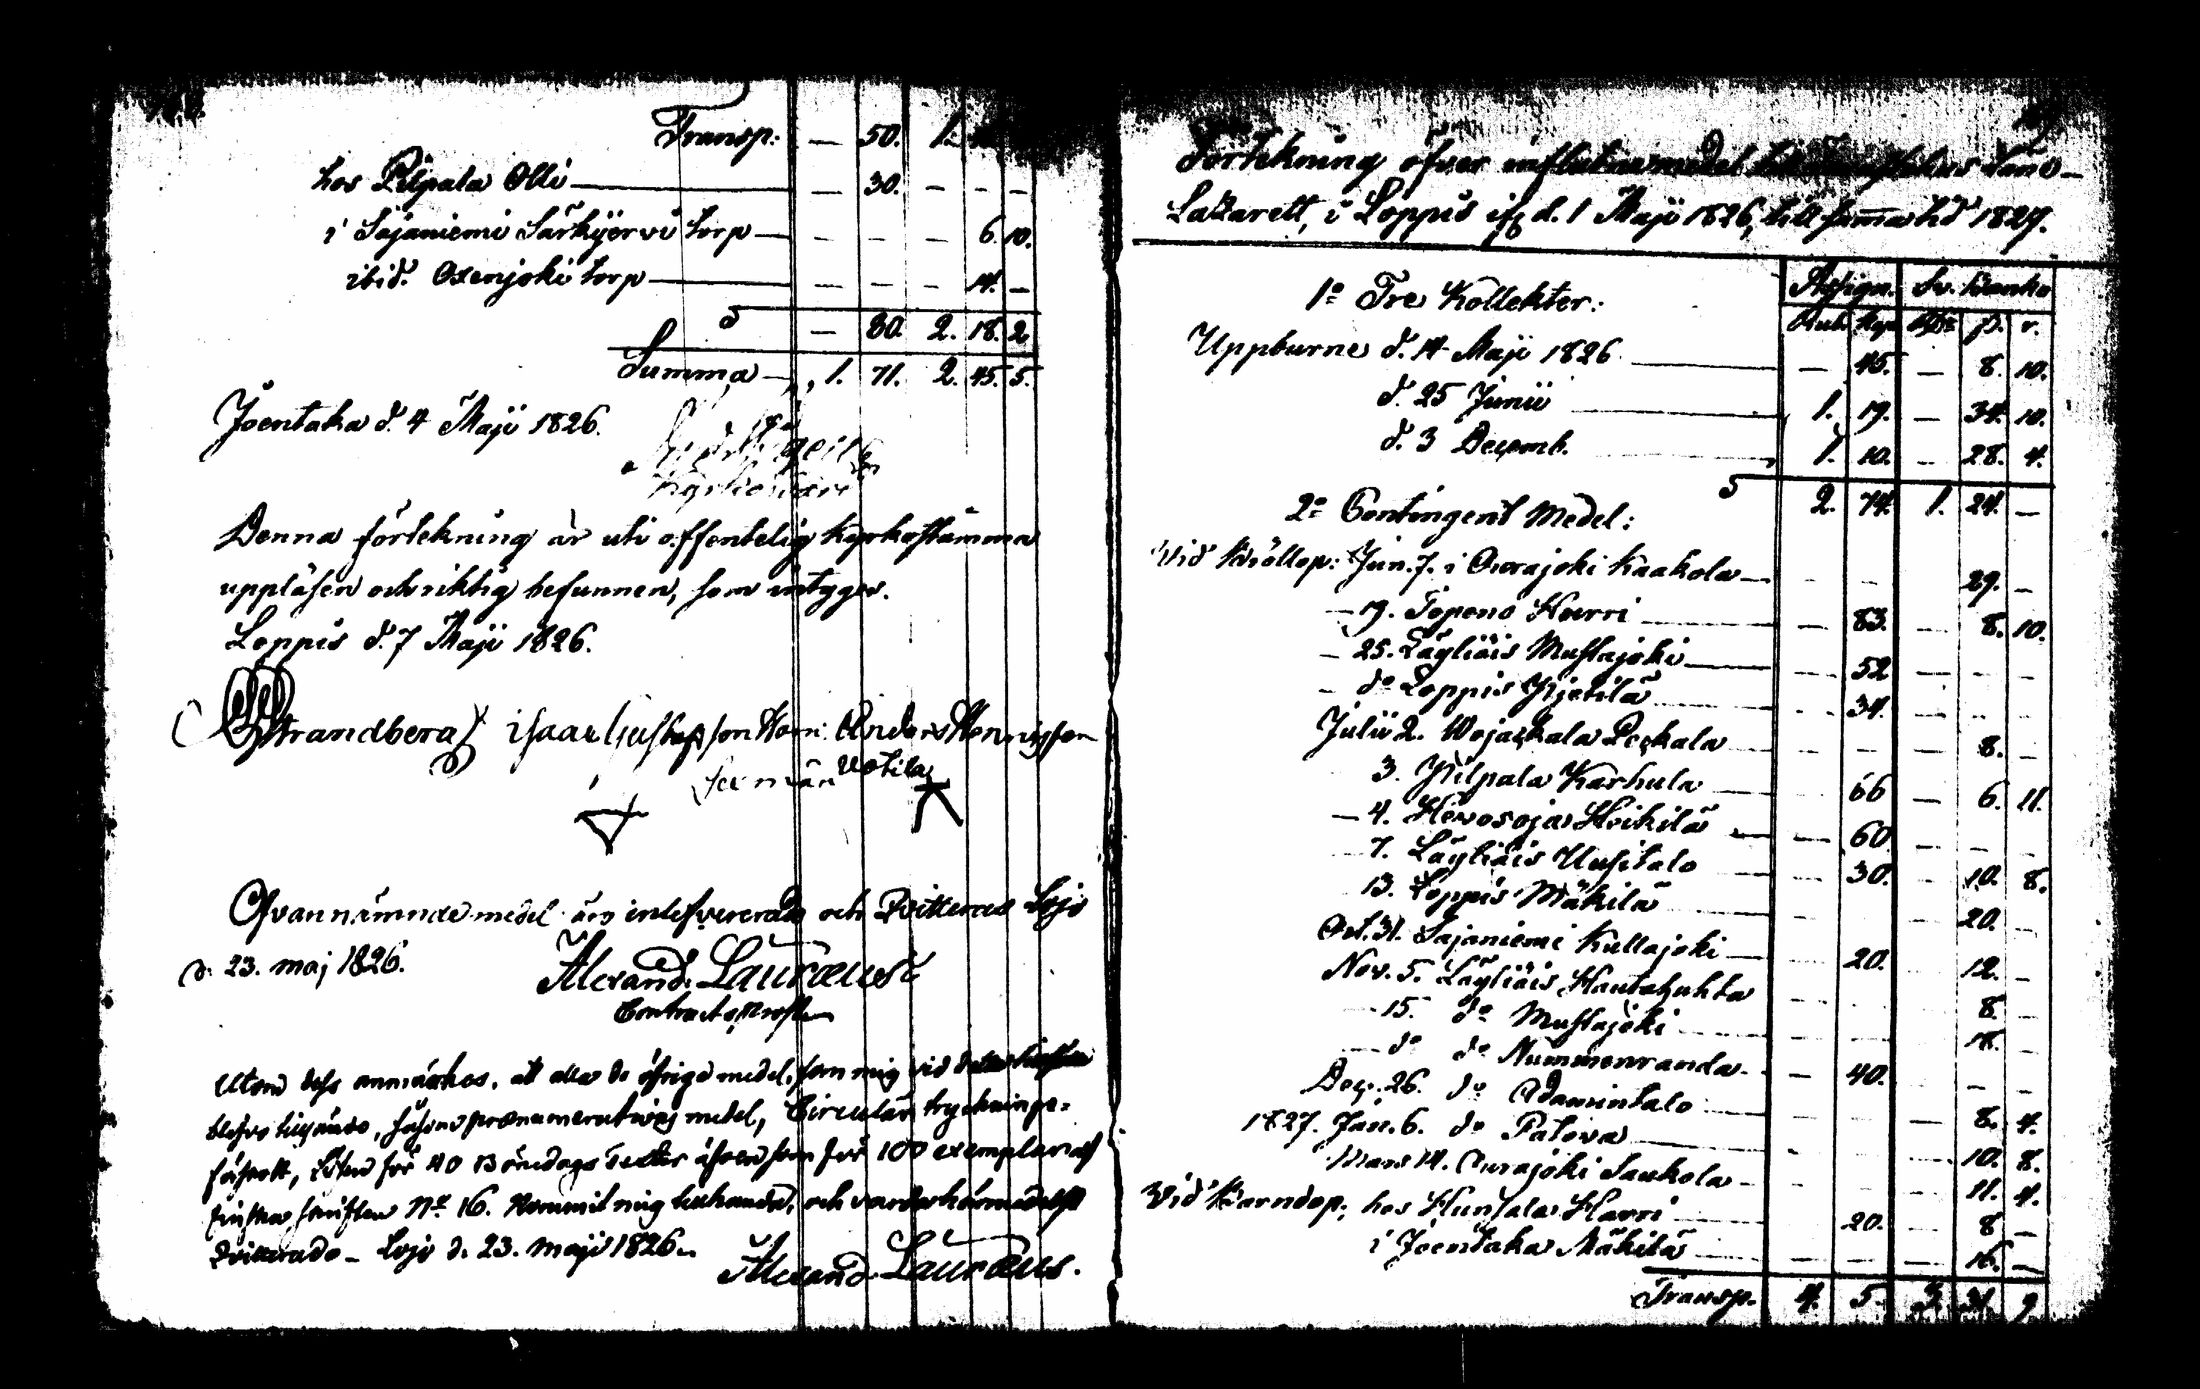 Transp: — 50. 1.
hos Pilpala Olli — — 30. — — —
i Sajaniemi Särkijervi torp — — — — 6. 10.
ibid. Oxenjoki torp — — — — 14. —
S — 80. 2. 18. 2
Summa — 1. 71. 2. 45. 5.
Joentaka d. 4 Maji 1826.
Denna förtekning är uti offentelig Kyrkostämma
uppläsen och riktig befunnen, som intygas.
Loppis d. 7 Maji 1826.
Strandberg Isaac Gustafsson Andersson Henrigsson
Uotila
Ofvannämnde medel äro inlefvererade och Qvitteras Lojo
d. 23. maj 1826.
Alexand. Lauræus
Contracts Prost
Utom dess anmärkes, at alla de öfrige medel, som mig vid
blefvo tilsände, såsom prænumerations medel, Circulär trycknings-
för 40 Böndags Texter äfvensom för 100 exemplar af
finska skriften No 16. kommit mig tillhanda, och varda härmedelst
Qvitterade — Lojo d. 23. maji 1826.
Alexand. Lauræus.
Förtekning öfver influtna medel Läns-
Lazarett, i Loppis ifr. d. 1 Maji 1826, till samma tid 1827.
Assign. Sv. Banko
Rub. Kop. Rdr ß. r.
1o Tre Kollekter:
Uppburne d. 14 Maji 1826 — 45. — 8. 10.
d. 25 Junii 1. 19. — 34. 10.
d. 3 Decemb. 1. 10. — 28. 4.
S 2. 74. 1. 24. —
2o Contingent Medel:
Vid Bröllop: Jun. 7. i Ourajoki Kaakola — — — 29. —
— 19. Topeno Hurri — 83. — 8. 10.
— 25. Läyliäis Mustajoki — 52 — — —
— do Loppis Yjetilä — 34. — — —
Julii 2. Wojaskala Peckala — — — 8. —
3. Pilpala Karhula — 66 — 6. 11.
— 4. Hevosoja Heikilä — 60 — — —
7. Läyliäis Uusitalo — 30. — 10. 8.
13. Loppis Mäkilä — — — 20. —
Oct. 31. Sajaniemi Kullajoki — 20. — 12. —
Nov. 5. Läyliäis Hautahuhta — — — 8. —
— 15. do Mustajoki — — — 18. —
— do do Nummenranda — 40. — — —
Dec. 26. do Adamintalo — — — 8. 4.
1827. Jan. 6. do Palova — — — 10. 8.
Mars 14. Ourajoki Saukola — — — 11. 4.
Vid Barndop: hos Hunsala Harri — 20. — 8 —
i Joentaka Mäkilä — — — 16. —
Transp. 4. 5. 3. 31. 9